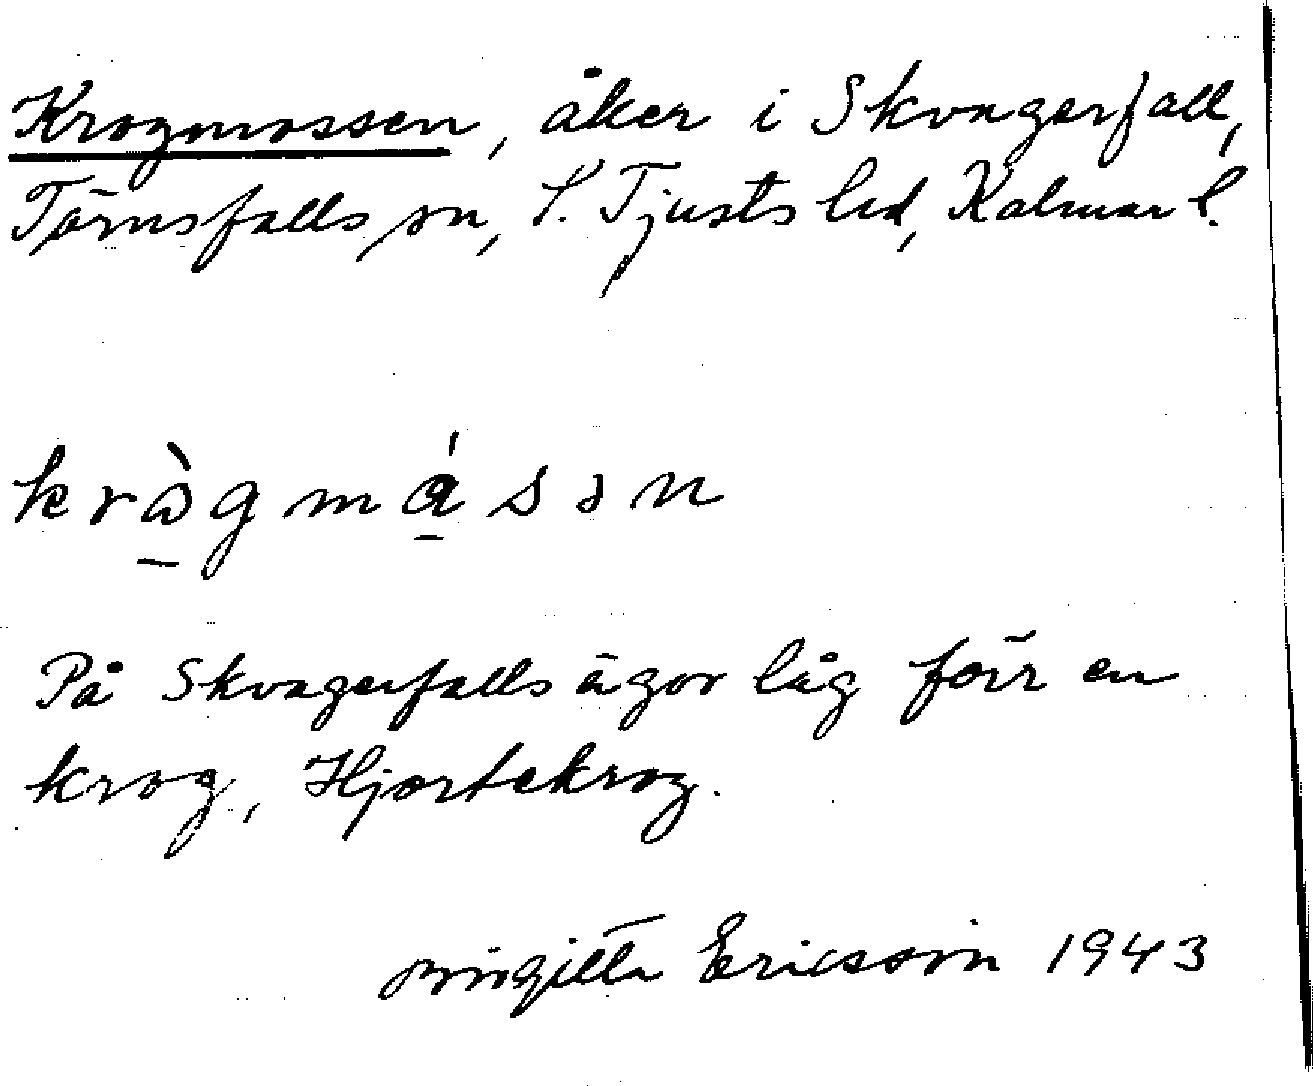 Krogmossen, åker i Skvagerfall,
Törnsfalls sn, S. Tjusts hd, Kalmar l.
kràgmásən
På Skvagerfalls ägor låg förr en
krog, Hjortekrog.
Birgitta Ericsson 1943